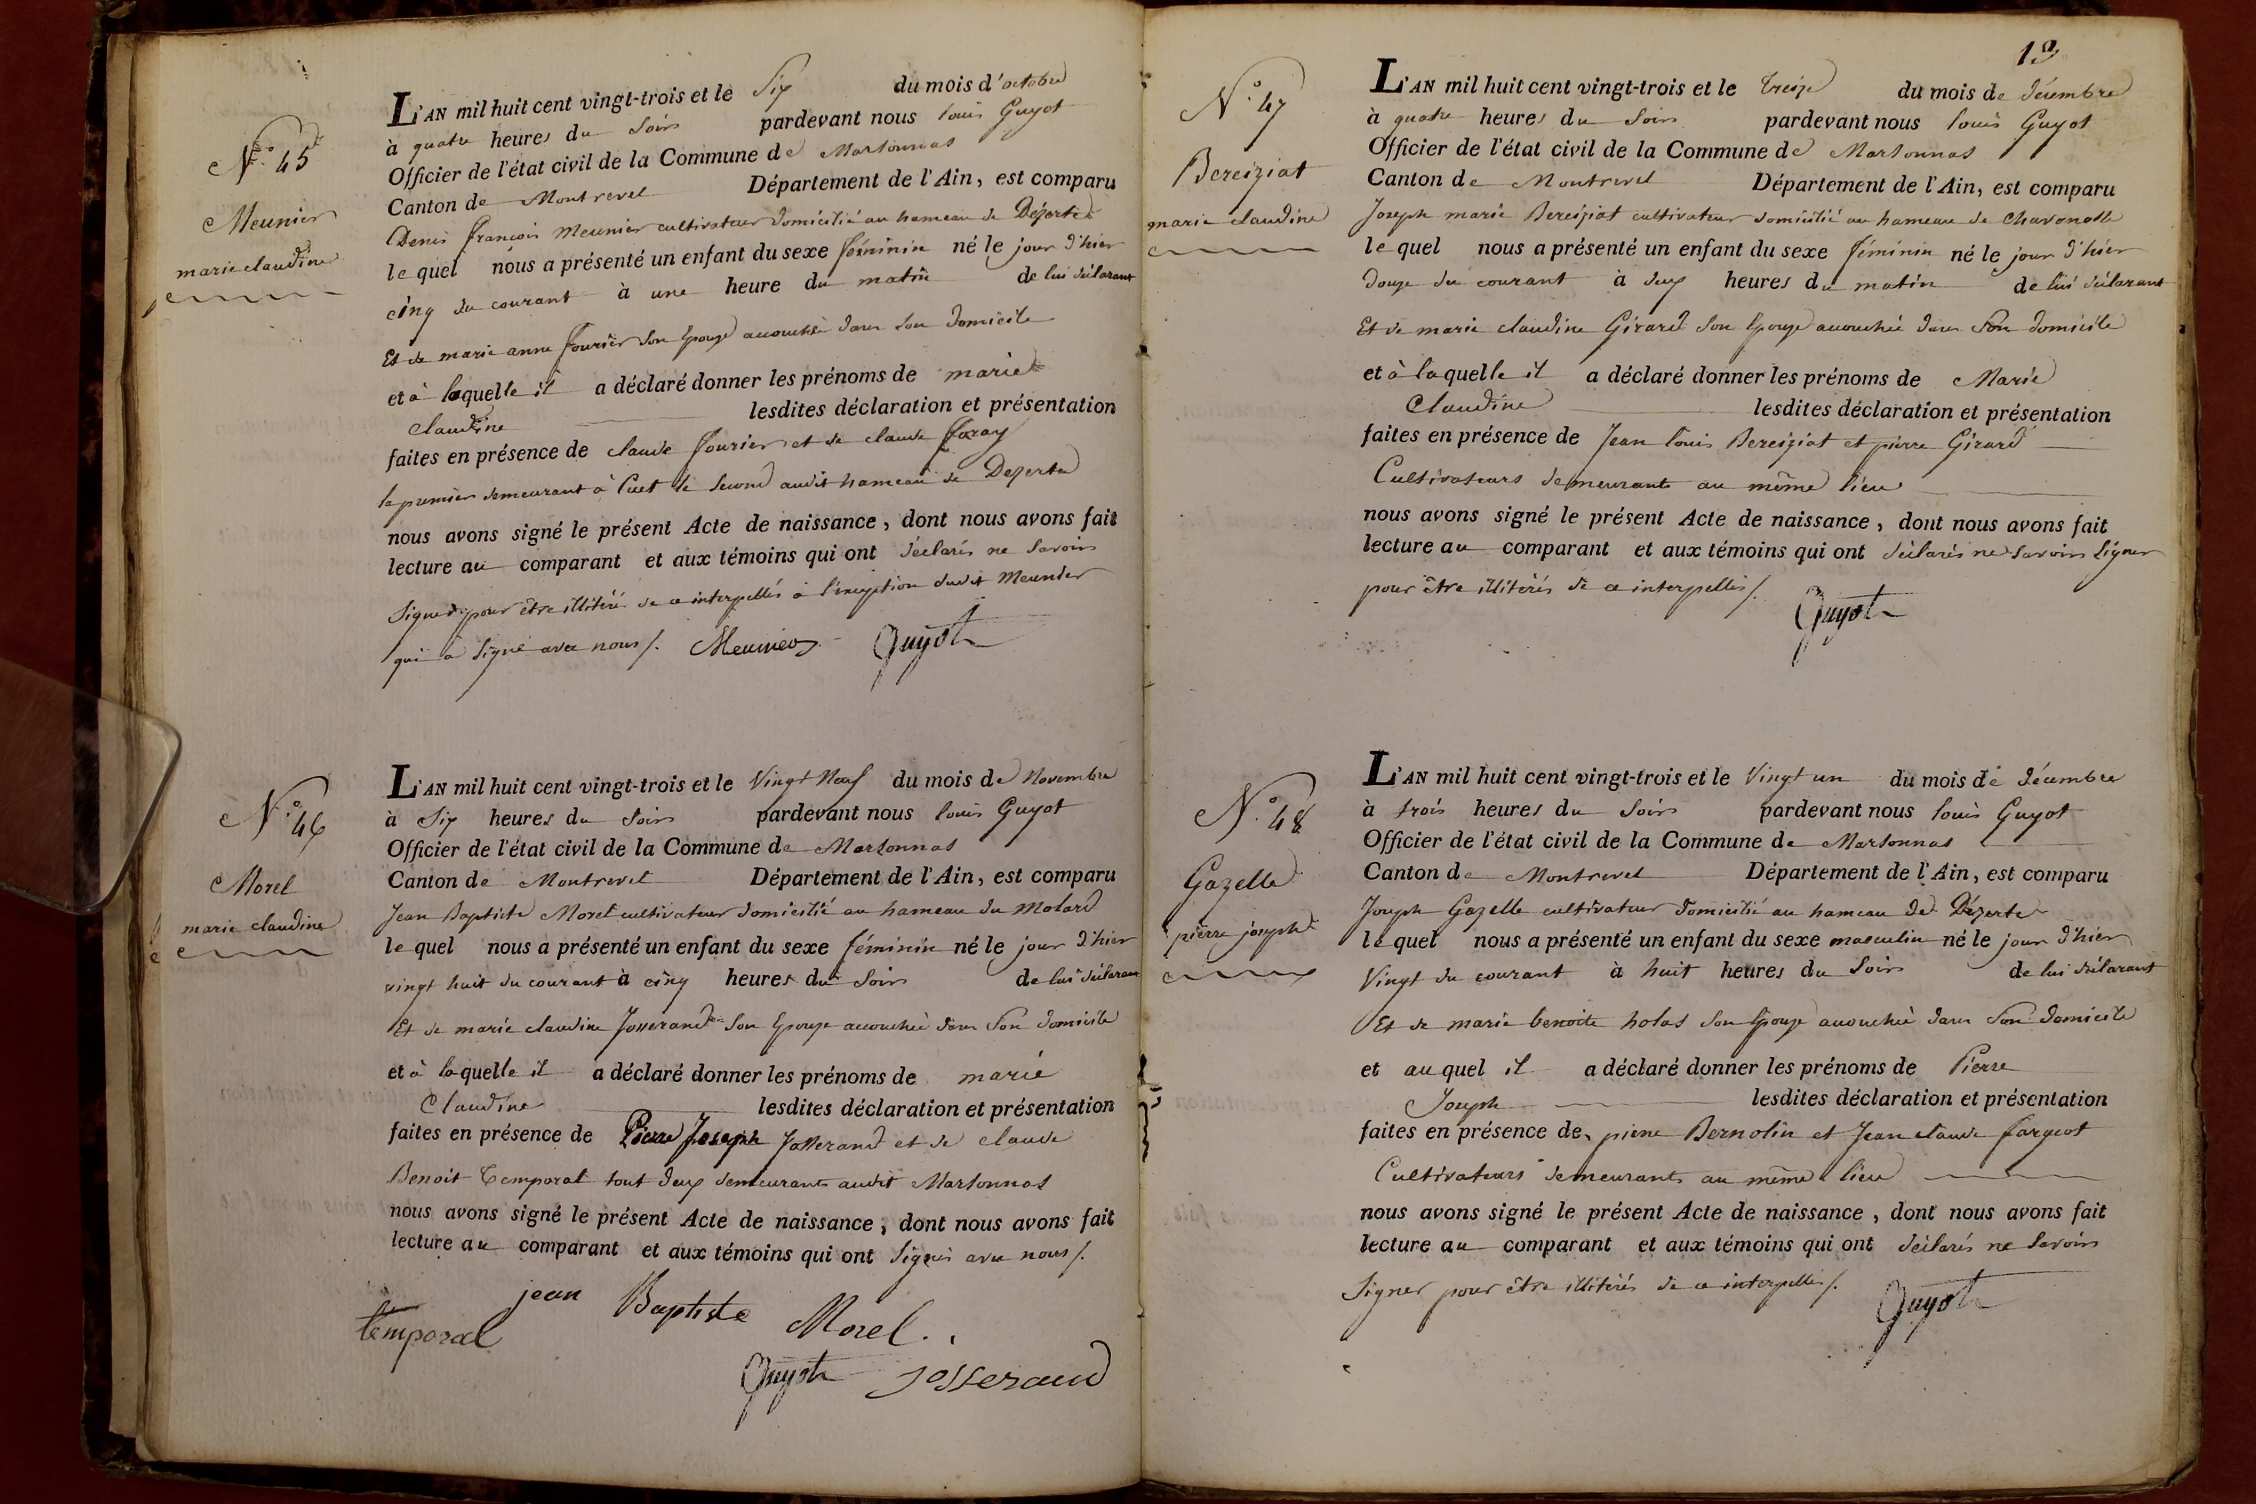 N.° 45
Meunier
marie claudine
L'AN mil huit cent vingt-trois et le Six du mois d'octobre
à quatre heures du Soir pardevant nous louis Guyot
Officier de l'état civil de la Commune de Marsonnas
Canton de Montrevel Département de l'Ain, est comparu
Denis françois Meunier cultivateur domicilié au hameau de Dézerte
le quel nous a présenté un enfant du sexe féminin né le jour d'hier
cinq du courant à une heure du matin de lui déclarant
Et de marie anne fourier Son Epouse accouchée dans Son domicile
et à laquelle il a déclaré donner les prénoms de marie
claudine lesdites déclaration et présentation
faites en présence de claude fourier et de claude foray
le premier demeurant à Cuet le Second audit hameau de Dezerte
nous avons signé le présent Acte de naissance, dont nous avons fait
lecture au comparant et aux témoins qui ont déclarés ne Savoir
Signer pour être illitéré de ce interpellés à l'éxception dudit Meunier
qui a Signé avec nous /. Meunier Guyot
N.° 46
Morel
marie claudine
L'AN mil huit cent vingt-trois et le Vingt Neuf du mois de Novembre
à Six heures du Soir pardevant nous louis Guyot
Officier de l'état civil de la Commune de Marsonnas
Canton de Montrevel Département de l'Ain, est comparu
Jean Baptiste Morel cultivateur domicilié au hameau du Molard
le quel nous a présenté un enfant du sexe féminin né le jour d'hier
vingt huit du courant à cinq heures du Soir de lui déclarant
Et de marie claudine Josserand Son Epouse accouchée dans Son domicile
et à laquelle il a déclaré donner les prénoms de marie
Claudine lesdites déclaration et présentation
faites en présence de Pierre Joseph Josserand et de claude
Benoit Temporal tout deux demeurants audit Marsonnas
nous avons signé le présent Acte de naissance, dont nous avons fait
lecture au comparant et aux témoins qui ont Signés avec nous /.
jean Baptiste Morel
temporal
Guyot Josserand
19
N.° 47
Bereiziat
marie claudine
L'AN mil huit cent vingt-trois et le treize du mois de décembre
à quatre heures du Soir pardevant nous louis Guyot
Officier de l'état civil de la Commune de Marsonnas
Canton de Montrevel Département de l'Ain, est comparu
Joseph marie Bereiziat cultivateur domicilié au hameau de Chavanosse
le quel nous a présenté un enfant du sexe féminin né le jour d'hier
douze du courant à deux heures du matin de lui déclarant
Et de marie claudine Girard Son Epouse accouchée dans Son domicile
et à laquelle il a déclaré donner les prénoms de Marie
Claudine lesdites déclaration et présentation
faites en présence de Jean louis Bereiziat et pierre Girard
Cultivateurs demeurants au même lieu
nous avons signé le présent Acte de naissance, dont nous avons fait
lecture au comparant et aux témoins qui ont déclarés ne Savoir Signer
pour être illitérés de ce interpellés /.
Guyot
N.° 48
Gazelle
pierre joseph
L'AN mil huit cent vingt-trois et le Vingt un du mois de décembre
à trois heures du Soir pardevant nous louis Guyot
Officier de l'état civil de la Commune de Marsonnas
Canton de Montrevel Département de l'Ain, est comparu
Joseph Gazelle cultivateur domicilié au hameau de Dézerte
le quel nous a présenté un enfant du sexe masculin né le jour d'hier
Vingt du courant à huit heures du Soir de lui déclarant
Et de marie benoite holas Son Epouse accouchée dans Son domicile
et au quel il a déclaré donner les prénoms de Pierre
Joseph lesdites déclaration et présentation
faites en présence de pierre Bernolin et Jean claude fargeot
Cultivateurs demeurants au même lieu
nous avons signé le présent Acte de naissance, dont nous avons fait
lecture au comparant et aux témoins qui ont déclarés ne Savoir
Signer pour être illitérés de ce interpellés /. Guyot